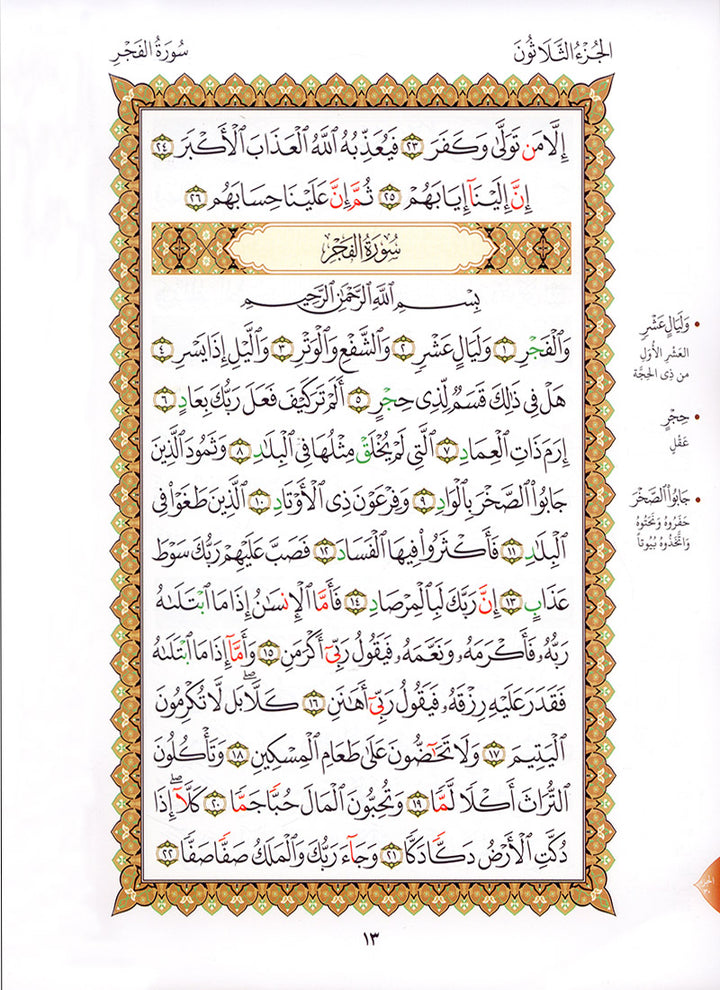 الجُزْءُ الثَّلَاثُونَ
سُورَةُ الفَجْرِ
إِلَّا مَن تَوَلَّىٰ وَكَفَرَ ٢٣ فَيُعَذِّبُهُ ٱللَّهُ ٱلْعَذَابَ ٱلْأَكْبَرَ ٢٤
إِنَّ إِلَيْنَآ إِيَابَهُمْ ٢٥ ثُمَّ إِنَّ عَلَيْنَا حِسَابَهُم ٢٦
سُورَةُ الفَجْرِ
بِسْمِ ٱللَّهِ ٱلرَّحْمَٰنِ ٱلرَّحِيمِ
وَٱلْفَجْرِ ١ وَلَيَالٍ عَشْرٍ ٢ وَٱلشَّفْعِ وَٱلْوَتْرِ ٣ وَٱلَّيْلِ إِذَا يَسْرِ ٤
هَلْ فِى ذَٰلِكَ قَسَمٌ لِّذِى حِجْرٍ ٥ أَلَمْ تَرَ كَيْفَ فَعَلَ رَبُّكَ بِعَادٍ ٦
إِرَمَ ذَاتِ ٱلْعِمَادِ ٧ ٱلَّتِى لَمْ يُخْلَقْ مِثْلُهَا فِى ٱلْبِلَٰدِ ٨ وَثَمُودَ ٱلَّذِينَ
جَابُوا۟ ٱلصَّخْرَ بِٱلْوَادِ ٩ وَفِرْعَوْنَ ذِى ٱلْأَوْتَادِ ١٠ ٱلَّذِينَ طَغَوْا۟ فِى
ٱلْبِلَٰدِ ١١ فَأَكْثَرُوا۟ فِيهَا ٱلْفَسَادَ ١٢ فَصَبَّ عَلَيْهِمْ رَبُّكَ سَوْطَ
عَذَابٍ ١٣ إِنَّ رَبَّكَ لَبِٱلْمِرْصَادِ ١٤ فَأَمَّا ٱلْإِنسَٰنُ إِذَا مَا ٱبْتَلَىٰهُ
رَبُّهُۥ فَأَكْرَمَهُۥ وَنَعَّمَهُۥ فَيَقُولُ رَبِّىٓ أَكْرَمَنِ ١٥ وَأَمَّآ إِذَا مَا ٱبْتَلَىٰهُ
فَقَدَرَ عَلَيْهِ رِزْقَهُۥ فَيَقُولُ رَبِّىٓ أَهَٰنَنِ ١٦ كَلَّا ۖ بَل لَّا تُكْرِمُونَ
ٱلْيَتِيمَ ١٧ وَلَا تَحَٰٓضُّونَ عَلَىٰ طَعَامِ ٱلْمِسْكِينِ ١٨ وَتَأْكُلُونَ
ٱلتُّرَاثَ أَكْلًا لَّمًّا ١٩ وَتُحِبُّونَ ٱلْمَالَ حُبًّا جَمًّا ٢٠ كَلَّآ ۖ إِذَا
دُكَّتِ ٱلْأَرْضُ دَكًّا دَكًّا ٢١ وَجَآءَ رَبُّكَ وَٱلْمَلَكُ صَفًّا صَفًّا ٢٢
وَلَيَالٍ عَشْرٍ
العَشْرِ الأُوَلِ
من ذِي الحِجَّة
حِجْرٍ
عَقْلٍ
جَابُوا۟ ٱلصَّخْرَ
حَفَرُوهُ وَنَحَتُوهُ
وَاتَّخَذُوهُ بُيُوتاً
١٣